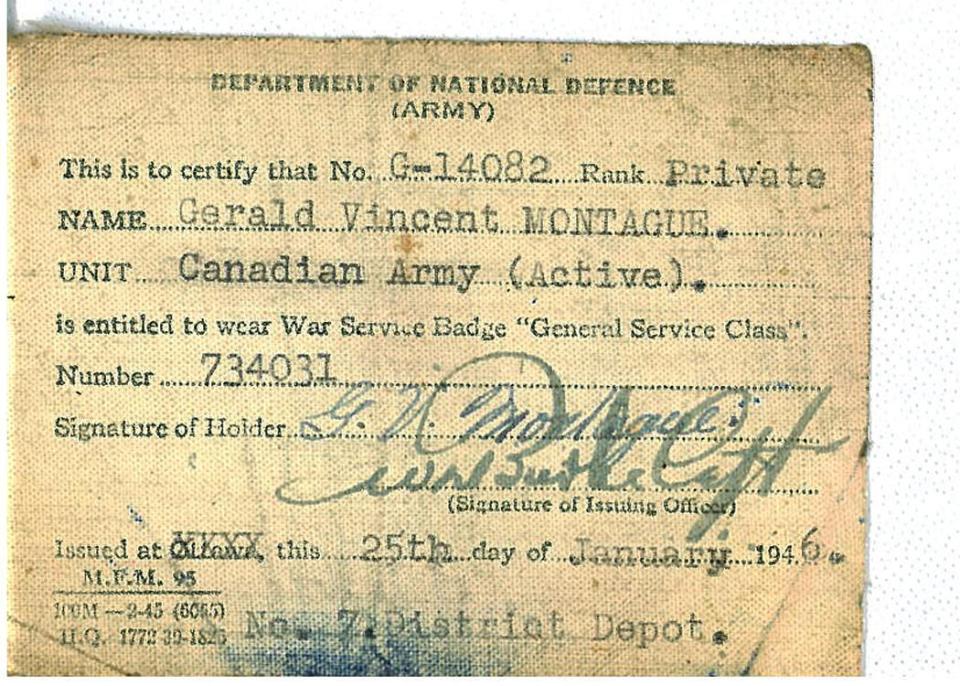 DEPARTMENT OF NATIONAL DEFENCE
(ARMY)
This is to certify that No. G-14082 Rank Private
NAME Gerald Vincent MONTAGUE.
UNIT Canadian Army (Active).
is entitled to wear War Service Badge "General Service Class".
Number 734031
Signature of Holder G. V. Montague.
(Signature of Issuing Officer)
Issued at Ottawa, this 25th day of January 1946.
M.F.M. 95
100M—2-45 (6065)
H.Q. 1772-39-1825
No. 7. District Depot.